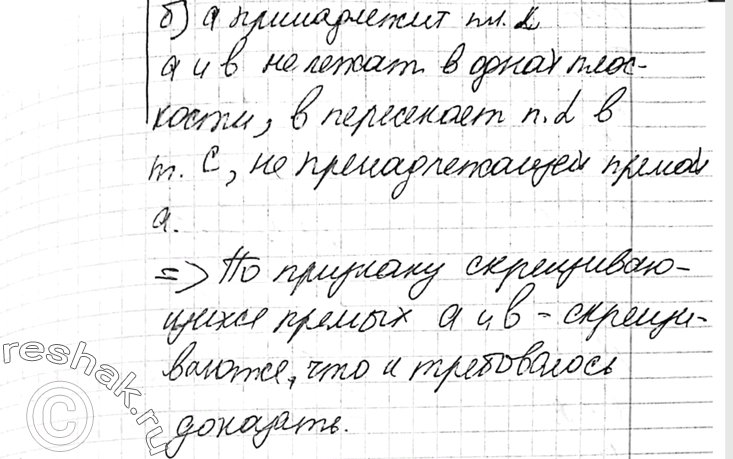 б) а принадлежит пл. α
а и в не лежат в одной плос-
кости, в пересекает п. α в
т. С, не принадлежащей прямой
а.
=> По признаку скрещиваю-
щихся прямых а и в - скрещи-
ваются, что и требовалось
доказать.
reshak.ru
©